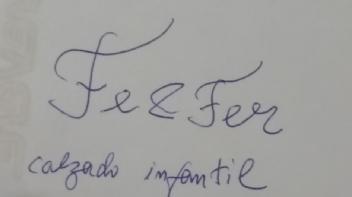 Fe&Fer
calzado infantil